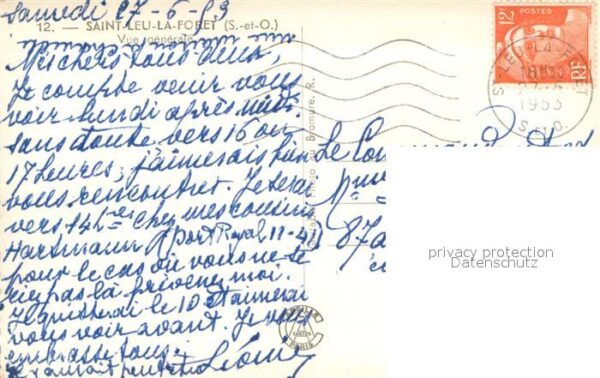 Samedi 27-6-53
12. — SAINT-LEU-LA-FORET (S.-et-O.)
Vue générale
Mes chers tous deux,
Je compte venir vous
voir lundi après midi
sans doute vers 16 ou
17 heures, j'aimerais bien
vous rencontrer. Je serai
vers 14 hres chez mes cousins
Hartmann Port Royal 11-4
pour le cas où vous ne se
riez pas là prévenez moi.
Je quitterai le 10 et aimerai
vous voir avant. Je vous
embrasse tous.
Léonie
Bromure, R.
12 POSTES
ST LEU-LA-F
18H30
1953
S. O.
Le
87
privacy protection
Datenschutz
PARIS